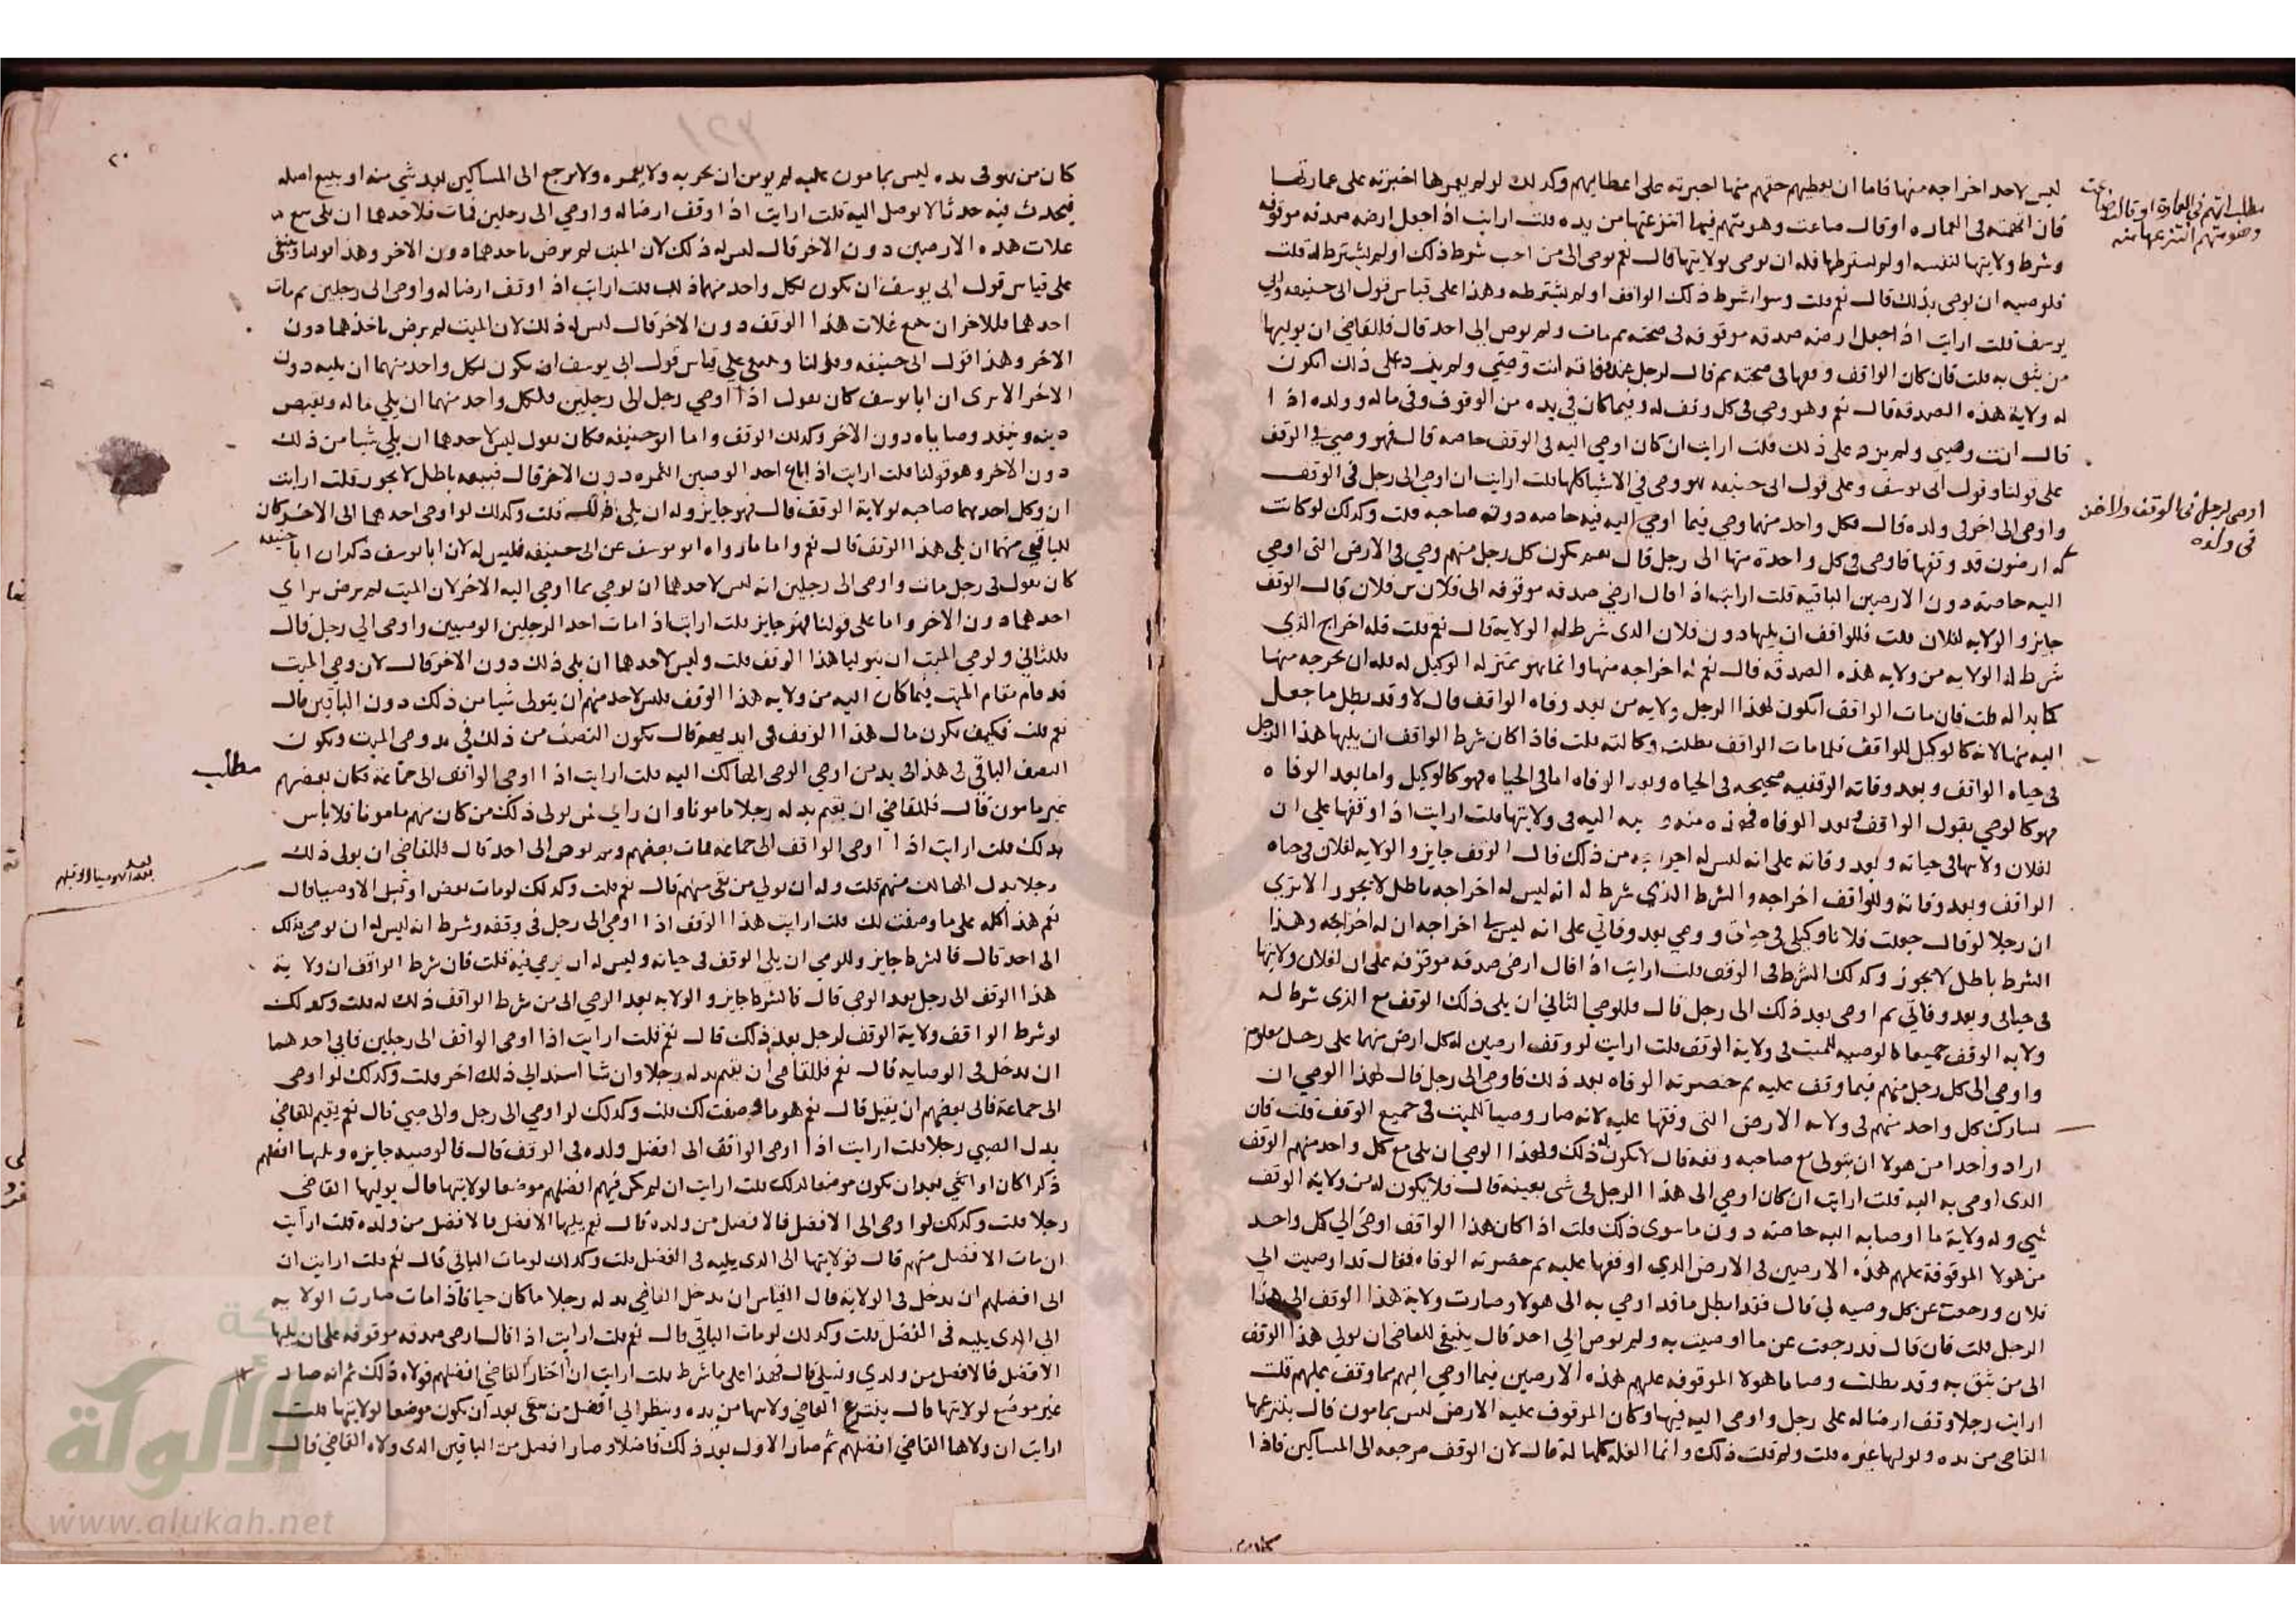 ليس لاحد اخراجه منها فاما ان يعطيهم حقهم منها اجبرته على اعطايهم وكذلك لو لم يعمرها اجبرته على عمارتها
فان اتهمته في العماره او قال ضاعت وهو متهم فيها انتزعتها من يده قلت ارايت اذا جعل ارضه صدقه موقوفه
وشرط ولايتها لنفسه او لم يشترطها فله ان يوصي بولايتها قال نعم يوصي الى من احب شرط ذلك او لم يشترط له قلت
فلوصيه ان يوصي بذلك قال نعم قلت وسوا شرط ذلك الواقف او لم يشترطه وهذا على قياس قول ابي حنيفه وابي
يوسف قلت ارايت اذا جعل ارضه صدقه موقوفه في صحته ثم مات ولم يوص الى احد قال فللقاضي ان يوليها
من يثق به قلت فان كان الواقف وقفها في صحته ثم قال لرجل عند وفاته انت وصيي ولم يزد على ذلك ايكون
له ولاية هذه الصدقه قال نعم وهو وصي في كل وقف له وفيما كان في يده من الوقوف وفي ماله وولده اذا
قال انت وصيي ولم يزد على ذلك قلت ارايت ان كان اوصي اليه في الوقف خاصه قال فهو وصي في الوقف
على قولنا وقول ابي يوسف وعلى قول ابي حنيفه هو وصي في الاشيا كلها قلت ارايت ان اوصى الى رجل في الوقف
واوصى الى اخر في ولده قال فكل واحد منهما وصي فيما اوصي اليه فيه خاصه دون صاحبه قلت وكذلك لو كانت
له ارضون قد وقفها فاوصى في كل واحدة منها الى رجل قال نعم يكون كل رجل منهم وصي في الارض التي اوصي
اليه خاصه دون الارضين الباقيه قلت ارايت اذا قال ارضي صدقه موقوفه الى فلان بن فلان قال الوقف
جايز والولايه لفلان قلت فللواقف ان يليها دون فلان الذي شرط له الولاية قال نعم قلت فله اخراج الذي
شرط له الولايه من ولايه هذه الصدقه قال نعم له اخراجه منها وانما هو بمنزلة الوكيل له فله ان يخرجه منها
كما بدا له قلت فان مات الواقف ايكون لهذا الرجل ولايه من بعد وفاه الواقف قال لا وقد بطل ما جعل
اليه منها لانه كالوكيل للواقف فلما مات الواقف بطلت وكالته قلت فاذا كان شرط الواقف ان يليها هذا الرجل
في حياه الواقف وبعد وفاته الوقفيه صحيحه في الحياه وبعد الوفاه اما في الحياه فهو كالوكيل واما بعد الوفاه
فهو كالوصي يقول الواقف وبعد الوفاه اليه في ولايتها قلت ارايت اذا وقفها على ان
لفلان ولايتها في حياته وبعد وفاته على انه ليس له اخراجه من ذلك قال الوقف جايز والولايه لفلان في حياه
الواقف وبعد وفاته وللواقف اخراجه والشرط الذي شرط له انه ليس له اخراجه باطل لا يجوز الا ترى
ان رجلا لو قال جعلت فلانا وكيلي في حياتي ووصي بعد وفاتي على انه ليس لي اخراجه ان له اخراجه وهذا
الشرط باطل لا يجوز وكذلك الشرط في الوقف قلت ارايت اذا قال ارضي صدقه موقوفه على ان لفلان ولايتها
في حياتي وبعد وفاتي ثم اوصى بعد ذلك الى رجل قال فللوصي الثاني ان يلي ذلك الوقف مع الذي شرط له
ولايه الوقف جميعا كالوصيه للميت في ولاية الوقف قلت ارايت لو وقف ارضين له كل ارض منهما على رجل معلوم
واوصي الى كل رجل منهم فيما وقف عليه ثم حضرته الوفاه بعد ذلك فاوصى الى رجل قال لهذا الوصي ان
يشارك كل واحد منهم في ولايه الارض التي وقفها عليه لانه صار وصيا للميت في جميع الوقف قلت فان
اراد واحدا من هولا ان يتولى مع صاحبه وقفه قال لا يكون له ذلك ولهذا الوصي ان يلي مع كل واحد منهم الوقف
الذي اوصى به اليه قلت ارايت ان كان اوصي الى هذا الرجل في شي بعينه قال فلا يكون له من ولاية الوقف
شي وله ولاية ما اوصا به اليه خاصه دون ما سوى ذلك قلت اذا كان هذا الواقف اوصى الى كل واحد
من هولا الموقوفة عليهم هذه الارضين في الارض الذي اوقفها عليه ثم حضرته الوفاه فقال قد اوصيت الى
فلان ورجعت عن كل وصيه لي قال فقد ابطل ما قد اوصي به الى هولا وصارت ولاية هذا الوقف الى هذا
الرجل قلت فان قال قد رجعت عن ما اوصيت به ولم يوص الى احد قال ينبغي للقاضي ان يولي هذا الوقف
الى من يثق به وقد بطلت وصايا هولا الموقوفه عليهم هذه الارضين فيما اوصي اليهم مما وقف عليهم قلت
ارايت رجلا وقف ارضا له على رجل واوصى اليه فيها وكان الموقوف عليه الارض ليس بمامون قال ينتزعها
القاضي من يده ويوليها غيره قلت ولم قلت ذلك وانما الغله كلها له قال لان الوقف مرجعه الى المساكين فاذا
مطلب اتهم في العمارة او قال ضاعت
وهو متهم انتزعها منه
اوصى لرجل في الوقف ولاخر
في ولده
٢٠
كان من هو في يده ليس بمامون عليه لم يومن ان يخربه ولا يعمره ولا يرجع الى المساكين بعد شي منه او يبيع اصله
فيحدث فيه حدثا لا يوصل اليه قلت ارايت اذا وقف ارضا له واوصي الى رجلين فمات فلاحدهما ان يلي بيع
غلات هذه الارضين دون الاخر قال ليس له ذلك لان الميت لم يرض باحدهما دون الاخر وهذا قولنا وينبغي
على قياس قول ابي يوسف ان يكون لكل واحد منهما ذلك قلت ارايت اذا وقف ارضا له واوصى الى رجلين ثم مات
احدهما فللاخر ان يبيع غلات هذا الوقف دون الاخر قال ليس له ذلك لان الميت لم يرض باخذهما دون
الاخر وهذا قول ابي حنيفه وقولنا وينبغي على قياس قول ابي يوسف ان يكون لكل واحد منهما ان يليه دون
الاخر الا ترى ان ابا يوسف كان يقول اذا اوصي رجل الى رجلين فلكل واحد منهما ان يلي ماله ويقبض
دينه وينفذ وصاياه دون الاخر وكذلك الوقف واما ابو حنيفه فكان يقول ليس لاحدهما ان يلي شيا من ذلك
دون الاخر وهو قولنا قلت ارايت اذا باع احد الوصيين الثمره دون الاخر قال فبيعه باطل لا يجوز قلت ارايت
ان وكل احدهما صاحبه بولاية الوقف قال فهو جايز وله ان يلي ذلك قلت وكذلك لو اوصى احدهما الى الاخر كان
للباقي منهما ان يلي هذا الوقف قال نعم واما ما رواه ابو يوسف عن ابي حنيفه فليس له لان ابا يوسف ذكر ان ابا حنيفه
كان يقول في رجل مات واوصى الى رجلين انه ليس لاحدهما ان يوصي بما اوصي اليه الاخر لان الميت لم يرض براي
احدهما دون الاخر واما على قولنا فهو جايز قلت ارايت اذا مات احد الرجلين الوصيين واوصى الى رجل قال
فللثاني ولوصي الميت ان يتوليا هذا الوقف قلت وليس لاحدهما ان يلي ذلك دون الاخر قال لان وصي الميت
قد قام مقام الميت فيما كان اليه من ولايه هذا الوقف فليس لاحد منهم ان يتولى شيا من ذلك دون الباقين قال
نعم قلت فكيف يكون مال هذا الوقف في ايديهم قال يكون النصف من ذلك في يد وصي الميت ويكون
النصف الباقي في هذا في يد من اوصي الوصي الهالك اليه قلت ارايت اذا اوصى الواقف الى جماعة فكان بعضهم
غير مامون قال فللقاضي ان يقيم بدله رجلا مامونا وان راى ان يولى ذلك من كان منهم مامونا فلا باس
بذلك قلت ارايت اذا اوصى الواقف الى جماعه فمات بعضهم ولم يوص الى احد قال فللقاضي ان يولى ذلك
رجلا بدل الهالك منهم قلت وله ان يولي من بقي منهم قال نعم قلت وكذلك لو مات بعض او قبل الاوصيا قال
نعم هذا كله على ما وصفت لك قلت ارايت هذا الوقف اذا اوصى الى رجل في وقفه وشرط انه ليس له ان يوصي بذلك
الى احد قال فالشرط جايز وللوصي ان يلي الوقف في حياته وليس له ان يوصي فيه قلت فان شرط الواقف ان ولاية
هذا الوقف الى رجل بعد الوصي قال فالشرط جايز والولايه بعد الوصي الى من شرط الواقف ذلك له قلت وكذلك
لو شرط الواقف ولاية الوقف لرجل بعد ذلك قال نعم قلت ارايت اذا اوصى الواقف الى رجلين فابى احدهما
ان يدخل في الوصايه قال نعم فللقاضي ان يقيم بدله رجلا وان شا اسند الى ذلك اخر قلت وكذلك لو اوصى
الى جماعة فابى بعضهم ان يقبل قال نعم هو ما وصفت لك قلت وكذلك لو اوصي الى رجل والى صبي قال نعم يقيم القاضي
بدل الصبي رجلا قلت ارايت اذا اوصى الواقف الى افضل ولده في الوقف قال فالوصيه جايزه ويليها افضلهم
ذكرا كان او انثي بعد ان يكون موضعا لذلك قلت ارايت ان لم يكن فيهم افضلهم موضعا لولايتها قال يوليها القاضي
رجلا قلت وكذلك لو اوصى الى الافضل فالافضل من ولده قال نعم يليها الافضل فالافضل من ولده قلت ارايت
ان مات الافضل منهم قال فولايتها الى الذي يليه في الفضل قلت وكذلك لو مات الباقي قال نعم قلت ارايت ان
ابى افضلهم ان يدخل في الولاية قال القياس ان يدخل القاضي بدله رجلا ما كان حيا فاذا مات صارت الولايه
الى الذي يليه في الفضل قلت وكذلك لو مات الباقي قال نعم قلت ارايت اذا قال ارضي صدقه موقوفه على ان يليها
الافضل فالافضل من ولدي ونسلي قال فهذا على ما شرط قلت ارايت ان اختار القاضي افضلهم فولاه ذلك ثم انه صار
غير موضع لولايتها قال ينتزع القاضي ولايتها من يده وينظر الى افضل من بقي بعد ان يكون موضعا لولايتها قلت
ارايت ان ولاها القاضي افضلهم ثم صار الاول بعد ذلك فاضلا وصار افضل من الباقين الذي ولاه القاضي قال
مطلب
www.alukah.net
الألوكة
شبكة